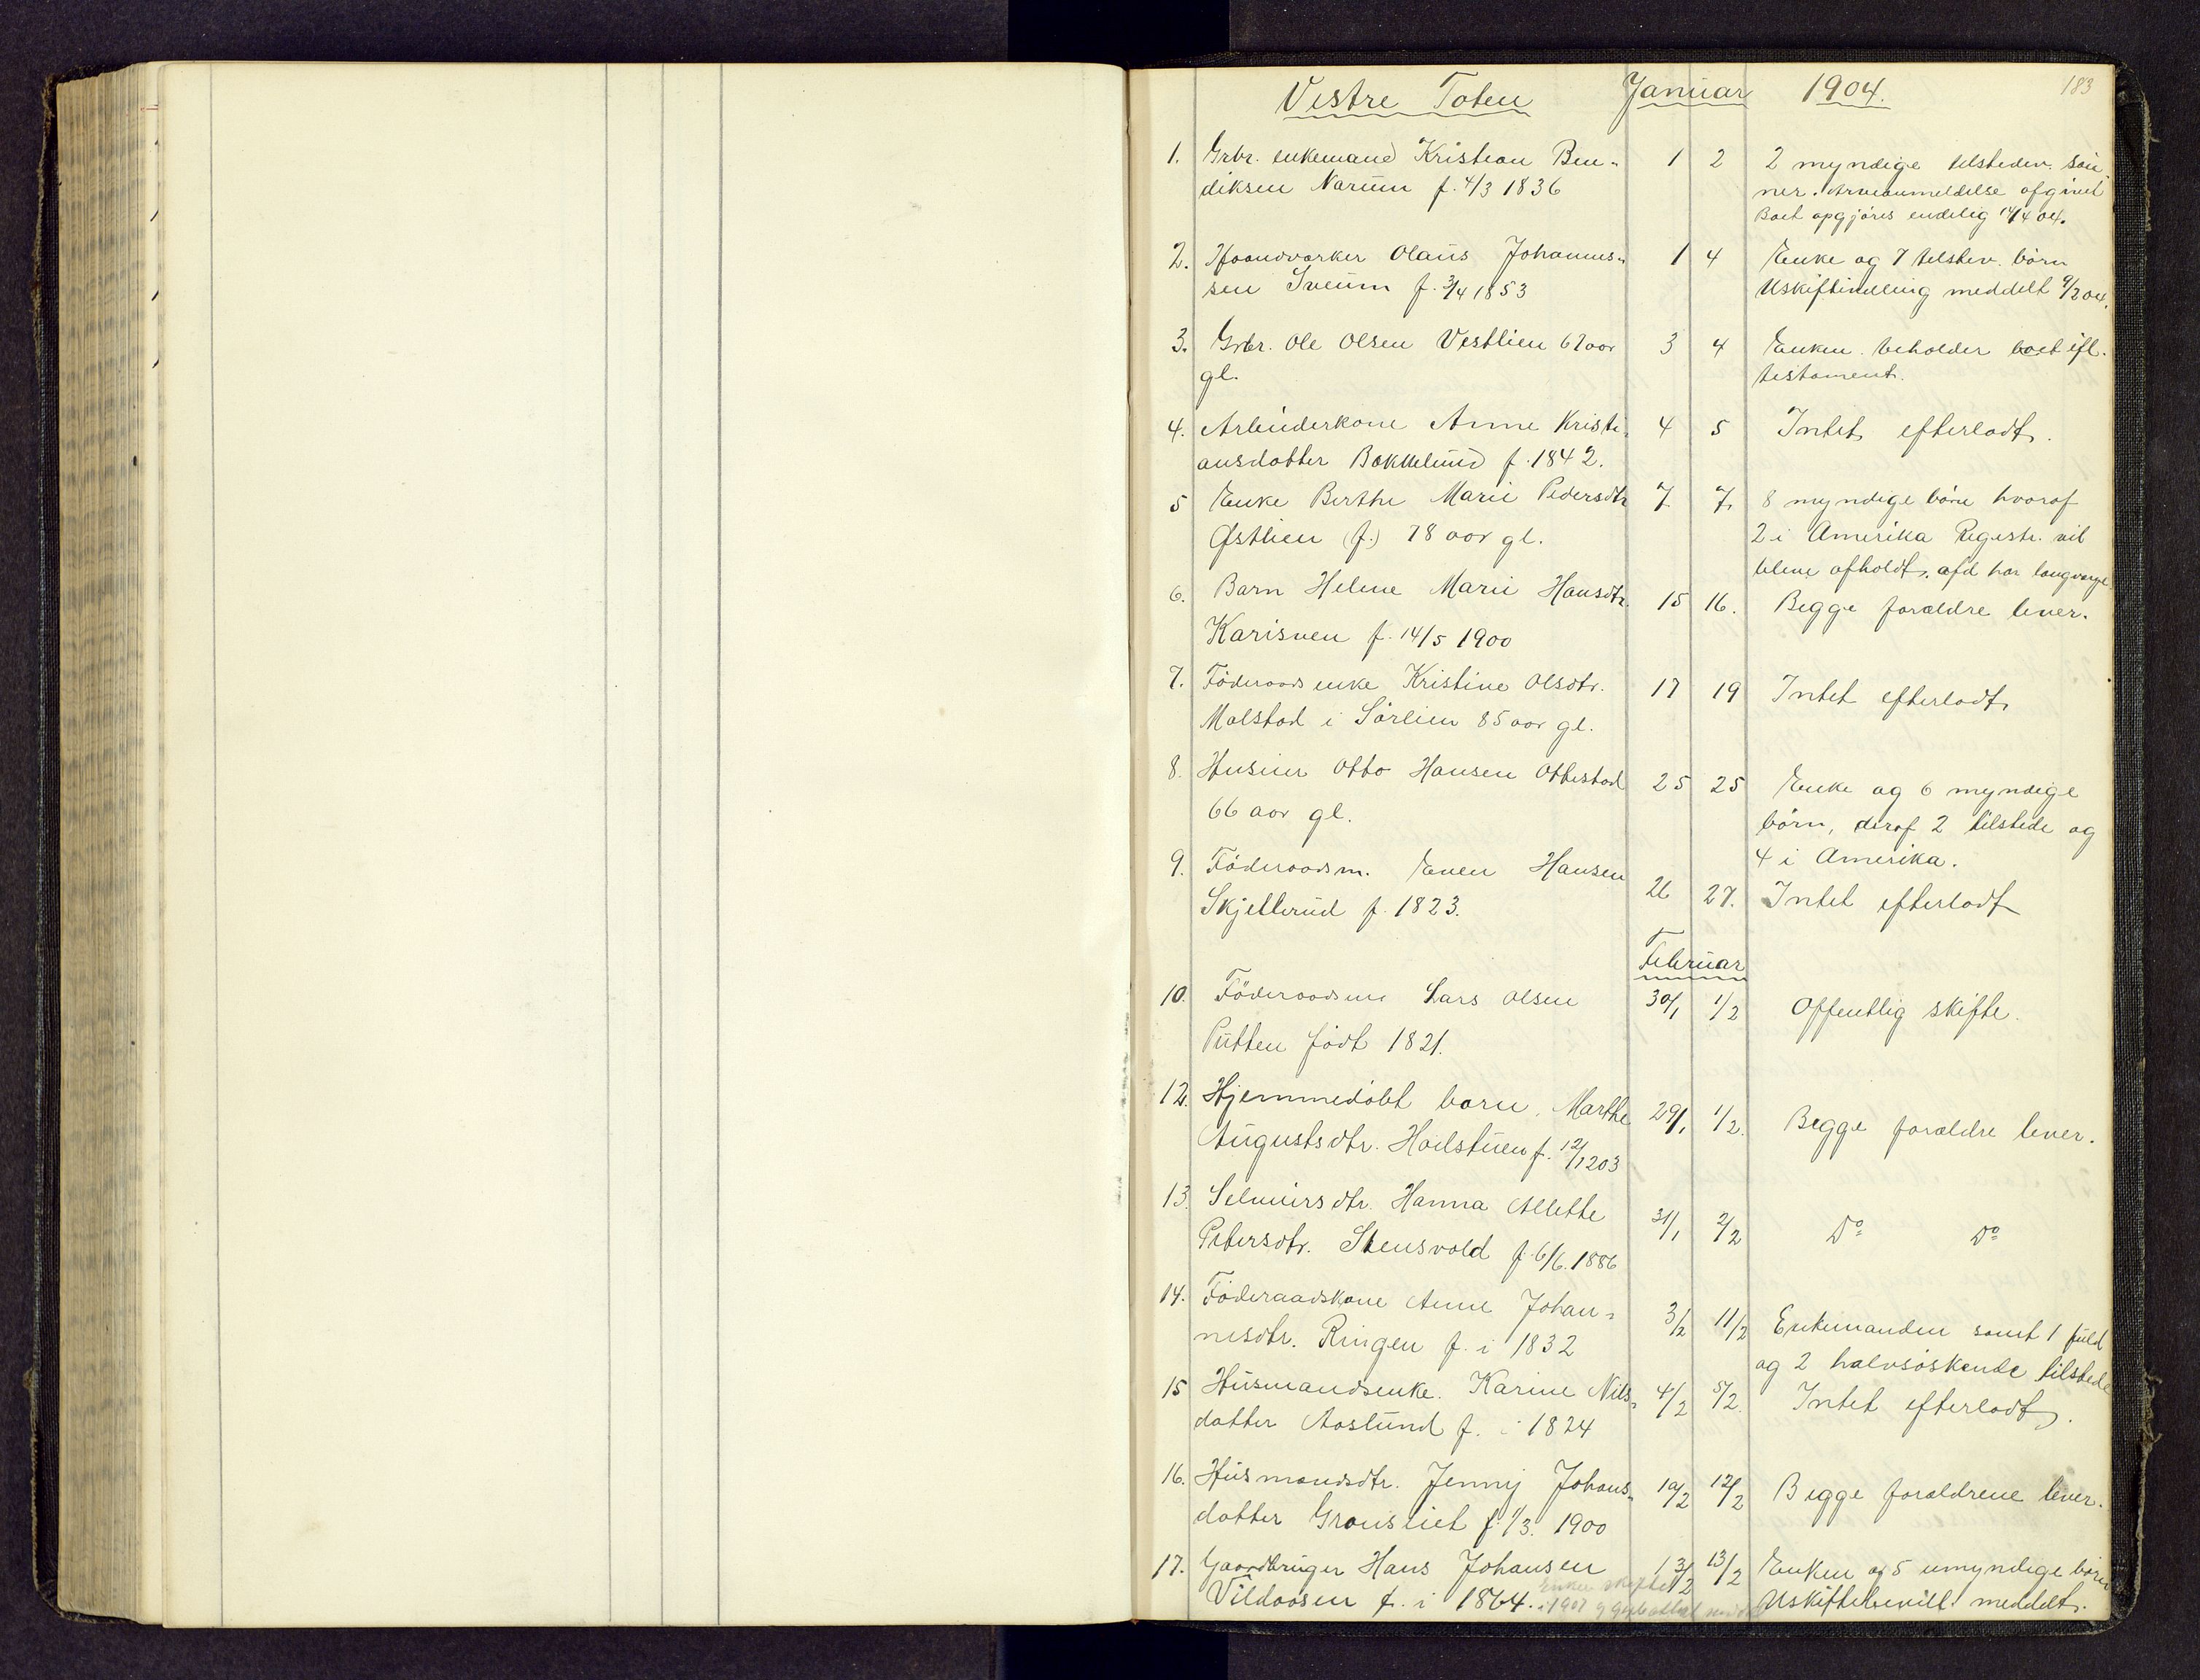 Vestre Toten Januar 1904. 183
1. Grbr. enkemand Kristian Ben- 1 2 2 myndige tilstedev. søn-
diksen Narum f. 4/3 1836 ner. Arveanmeldelse afgivet
Boet opgjøres endelig 14/4 04.
2. Haandværker Olaus Johannes- 1 4 Enke og 7 tilstev. børn
sen Sveum f. 3/4 1853 Uskiftebevilling meddelt 9/2 04.
3. Grbr. Ole Olsen Vestlien 67 aar 3 4 Enken beholder boet ifl.
gl. testament.
4. Arbeiderkone Anne Kristi- 4 5 Intet efterladt.
ansdatter Bakkelund f. 1842.
5 Enke Berthe Marie Pedersdtr 7 7 8 myndige børn hvoraf
Østlien (f.) 78 aar gl. 2 i Amerika Registr. vil
blive afholdt. afd har
6. Barn Helene Marie Hansdtr. 15 16. Begge forældre lever.
Karisveen f. 14/5 1900
7. Föderaadsenke Kristine Olsdtr. 17 19 Intet efterladt
Malstad i Sörlien 85 aar gl.
8. Huseier Otto Hansen Ottestad 25 25 Enke og 6 myndige
66 aar gl. börn, deraf 2 tilstede og
4 i Amerika.
9. Föderaadsm. Even Hansen 26 27. Intet efterladt
Skjellerud f. 1823.
Februar
10. Föderaadsm Lars Olsen 30/1 1/2 Offentlig skifte.
Putten födt 1821.
12. Hjemmedöbt barn Marthe 29/1 1/2. Begge forældre lever.
Augustsdtr. Hoilstuen f. 12/12 03
13. Selveiersdtr. Hanna Alette 31/1 2/2 Do Do
Petersdtr. Stensvold f. 6/6. 1886
14. Föderaadskone Anne Johan- 3/2 11/2 Enkemanden samt 1 fuld
nesdtr. Ringen f. i 1832 og 2 halvsöskende tilstede
15 Husmandsenke. Karine Nils- 4/2 5/2. Intet efterladt.
datter Aaslund f. i 1824
16. Husmandsdtr. Jenny Johans- 10/2 12/2 Begge forældrene lever.
datter Granslien f. 1/3. 1900
17. Gaardbruger Hans Johansen 13/2 13/2 Enken og 5 umyndige börn
Vildaasen f. i 1864. Enken skiftet i 1907 Uskiftebevill. meddelt.